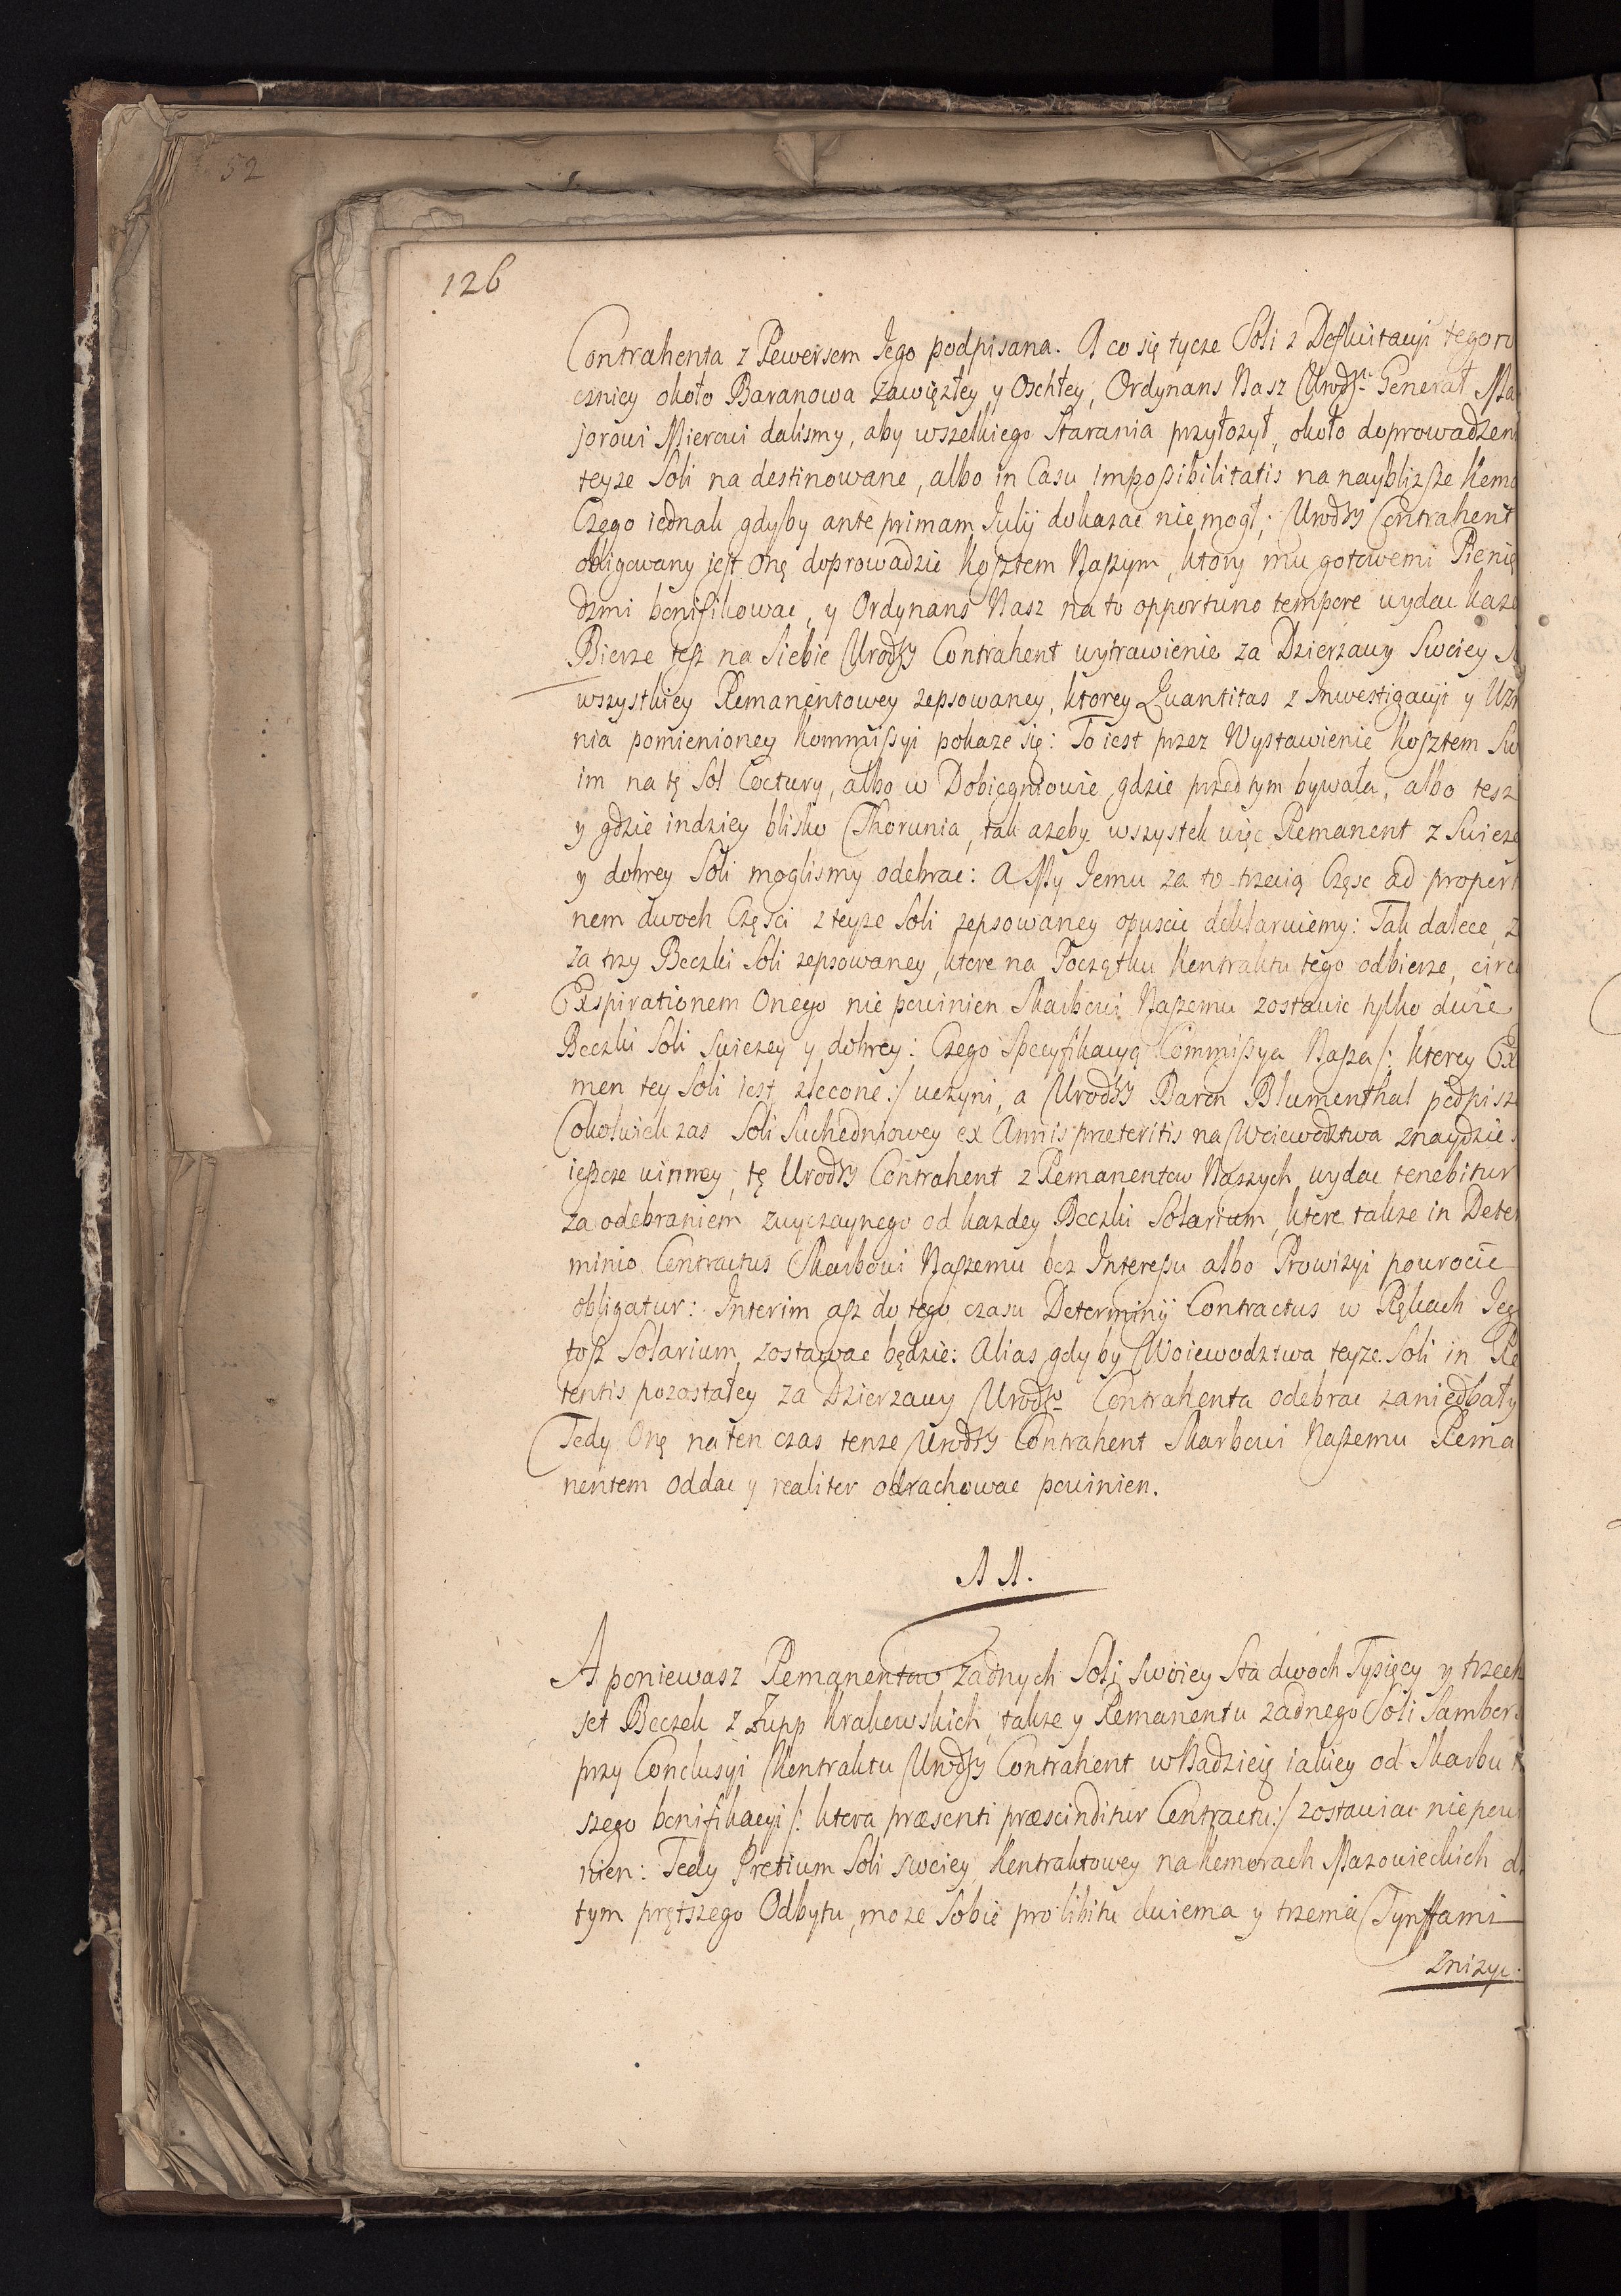 52
126
Contrahenta z Rewersem Jego podpisana. A co się tycze Soli z Defluitacyi tegoro
czniey około Baranowa zawięzłey y Oschłey, Ordynans Nasz Urodz. Generał Ma
jorowi Mierowi dalismy, aby wszelkiego Starania przyłozył, około doprowadzen
teyze Soli na destinowane, albo in Casu impossibilitatis na naybliższe Komo
Czego iednak gdyby ante primam Julij dokazac nie mogł; Urodzy Contrahent
obligowany jest Onę doprowadzic kosztem Naszym, ktory mu gotowemi Pienię
dzmi bonifikowac, y Ordynans Nasz na to opportuno tempore wydac kaze
Bierze tesz na Siebie Urodzy Contrahent wytrawienie za Dzierzawy Swoiey
wszystkiey Remanentowey zepsowaney, ktorey Quantitas z Inwestigacyi y Uzn
nia pomienioney Kommissyi pokaze się: To iest przez Wystawienie kosztem Sw
im na tę Sol Coctury, albo w Dobiegniowie gdzie przed tym bywała, albo tesz
y gdzie indziey blisko Thorunia, tak azeby wszystek więc Remanent z Swieze
y dobrey Soli moglismy odebrac: A My Jemu za to trzecią Częsc ad propert
nem dwoch Części z teyze Soli zepsowaney opuscic deklaruiemy: Tak dalece, z
za trzy Beczki Soli zepsowaney, ktore na Początku Kontraktu tego odbierze, circ
Exspirationem Onego nie powinien Skarbowi Naszemu zostawic tylko dwie
Beczki Soli swiezey y dobrey: Czego Specyfikacyą Commissya Nasza /: ktorey Ex
men tey Soli iest zlecone :/ uczyni, a Urodzy Baron Blumenthal podpisze
Cokolwiek zas Soli Suchedniowey ex Annis præteritis na Woiewodztwa znaydzie s
ieszcze winney, tę Urodzy Contrahent z Remanentow Naszych wydac tenebitur
za odebraniem zwyczaynego od kazdey Beczki Solarium, ktore takze in Deter
minio Contractus Skarbowi Naszemu bez Interessu albo Prowizyi powrocic
obligatur: Interim asz do tego czasu Determinij Contractus w Rękach Jeg
tosz Solarium zostawac będzie: Alias gdy by Woiewodztwa teyze Soli in Re
tentis pozostałey za Dzierzawy Urodz. Contrahenta odebrac zaniedbały
Tedy Onę na ten czas tenze Urodzy Contrahent Skarbowi Naszemu Rema
nentem oddac y realiter odrachowac powinien.
A A.
A poniewasz Remanentow zadnych Soli swoiey Sta dwoch Tysięcy y trzech
set Beczek z Zupp Krakowskich, takze y Remanentu zadnego Soli Sambor
przy Conclusyi Kontraktu Urodzy Contrahent w Nadzieię iakiey od Skarbu
szego bonifikacyi /: ktora præsenti præscinditur Contractu :/ zostawiac nie powi
nien: Tedy Pretium Soli swoiey Kontraktowey na Komorach Mazowieckich d
tym prętszego Odbytu, moze Sobie pro libitu dwiema y trzema Tynffami
znizyc.